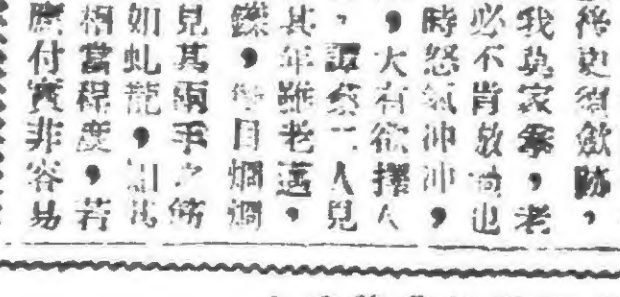 須斂跡，
我莫家拳，老
必不肯放過也
時怒氣沖沖，
，大有欲擇人
，譚蔡二人見
其年雖老邁，
鑠，目烱烱
見其兩手之筋
如虬龍，如
相當程度，若
應付實非容易